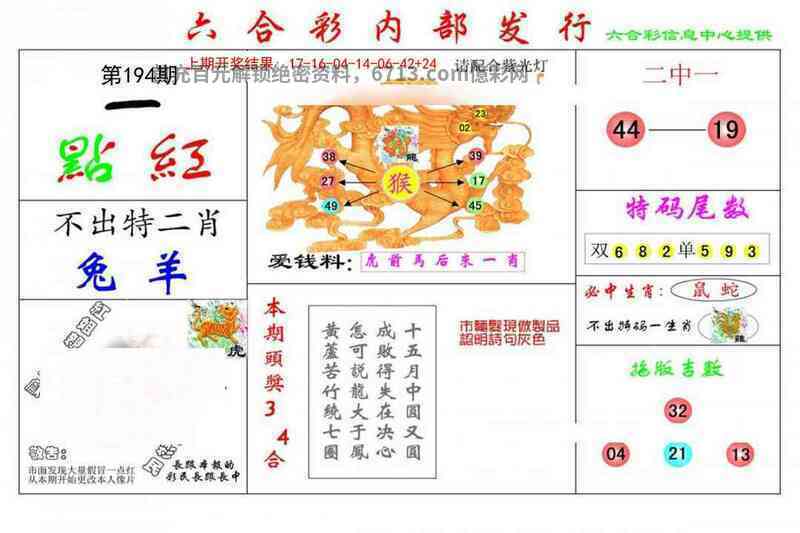 六合彩内部发行
六合彩信息中心提供
上期开奖结果 17-16-04-14-06-42+24
请配合紫光灯
第194期
充百元解锁绝密资料，6713.com億彩网
一
點 紅
不出特二肖
兔 羊
虎
敬告:
市面发现大量假冒一点红
从本期开始更改本人像片
長跟本報的
彩民長跟長中
23
02
龍
38
39
27
猴
17
49
45
爱钱料:
虎前馬后来一肖
本期頭獎34合
十五月中圆又圆
成敗得失在决心
怎可説龍大于鳳
黃蘆苦竹繞七圈
市麵髮現倣製品
認明詩句灰色
二中一
44
19
特码尾数
双 6 8 2 单 5 9 3
必中生肖: 鼠 蛇
不出特码一生肖
龍
拖版吉数
32
04
21
13